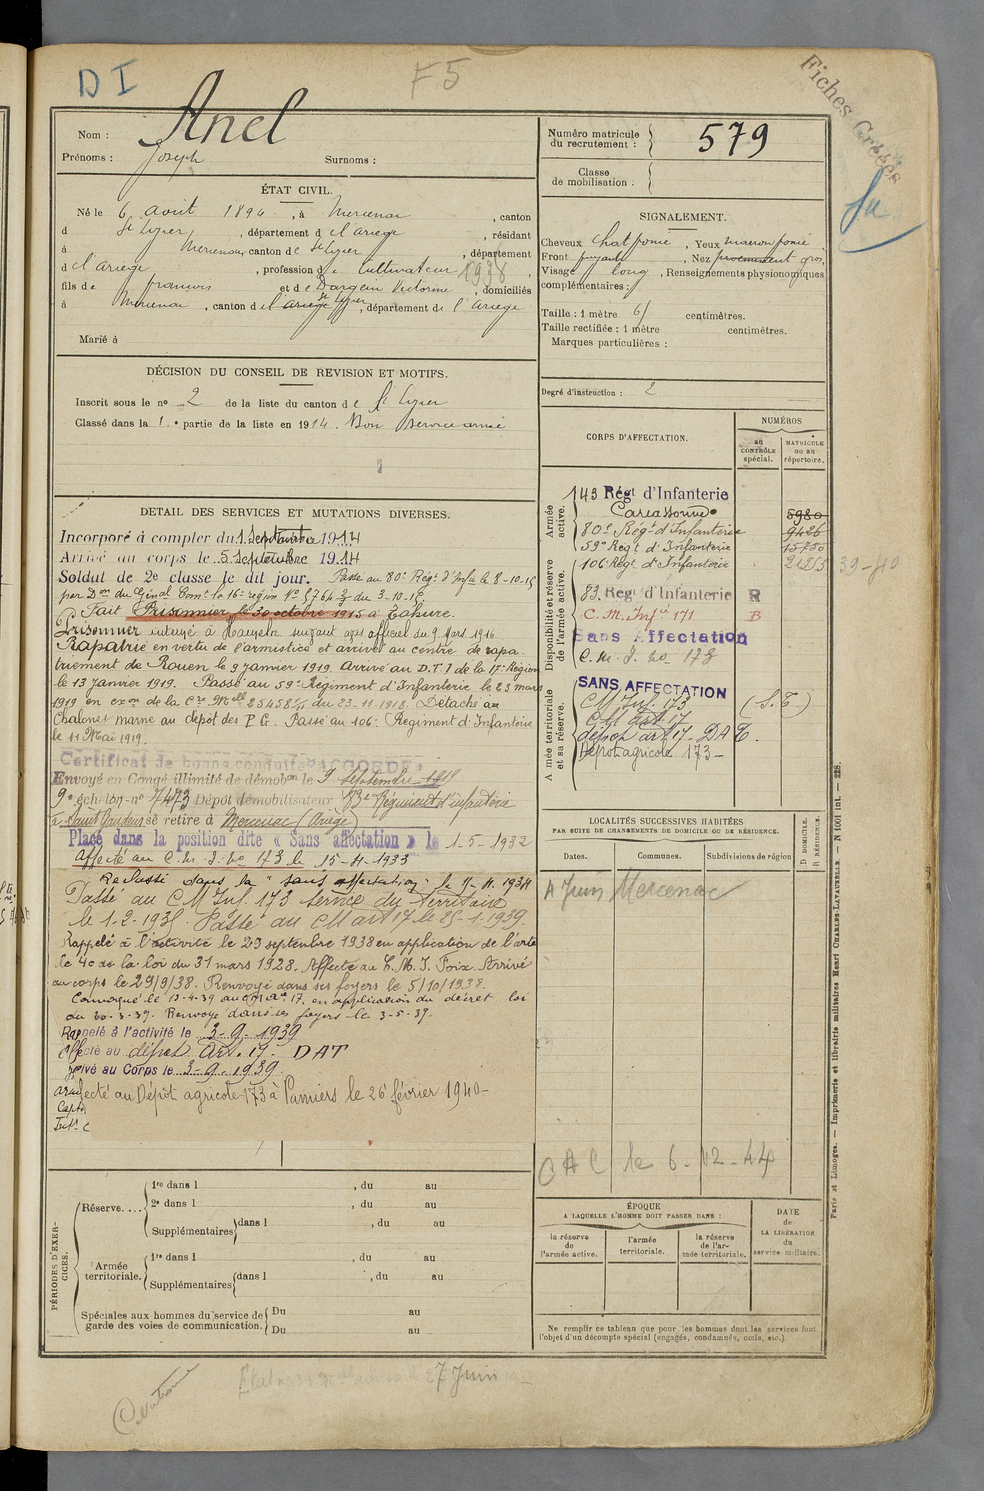 D I
F 5
Fiches Créées
Nom : Anel
Prénoms : Joseph Surnoms :
Numéro matricule du recrutement : 579
Classe de mobilisation :
ÉTAT CIVIL.
Né le 6 août 1894, à Mercenac, canton
d St Lizier, département de l'ariège, résidant
à Mercenac, canton de St Lizier, département
d l'ariège, profession de Cultivateur 1938
fils de françois et de Dargein Victorine, domiciliés
à Mercenac, canton de St Lizier, département de l'ariège
Marié à
SIGNALEMENT.
Cheveux chat foncé, Yeux marron foncé
Front fuyant, Nez gros,
Visage long, Renseignements physionomiques
complémentaires :
Taille : 1 mètre 61 centimètres.
Taille rectifiée : 1 mètre centimètres.
Marques particulières :
Degré d'instruction : 2
DÉCISION DU CONSEIL DE REVISION ET MOTIFS.
Inscrit sous le no 2 de la liste du canton de St Lizier
Classé dans la 1e partie de la liste en 1914. Bon service armé
DETAIL DES SERVICES ET MUTATIONS DIVERSES.
Incorporé à compter du 1 Septembre 1914
Arrivé au corps le 5 septembre 1914
Soldat de 2e classe le dit jour. Passé au 80e Régt d'Infie le 8-10-15
par Don du Génal Comt la 16e région No 5764 3/2 du 3-10-15
Fait Prisonnier le 30 octobre 1915 à Tahure.
Prisonnier interné à suivant avis officiel du 9 Mars 1916
Rapatrié en vertu de l'armistice et arrivé au centre de rapa
triement de Rouen le 9 janvier 1919. Arrivé au D.T.I de la 17e Région
le 13 janvier 1919. Passé au 59e Régiment d'Infanterie le 23 mars
1919 en exon de la Cre Melle 25458 du 23-11-1918. Détaché au
Chalons marne au depot des P G. Passé au 106e Régiment d'Infanterie
le 11 Mai 1919.
Certificat de bonne conduite "ACCORDÉ"
Envoyé en Congé illimité de démobon le 9 septembre 1919
9e échelon no 7473 Dépôt démobilisateur 83e Régiment d'infanterie
à Saint Gaudens se retire à Mercenac (Ariège)
Placé dans la position dite « Sans affectation » le 1-5-1932
Affecté au C.M.I. no 173 le 15-4-1933
Reclassé dans la "sans affectation" le 11-4-1934
Passé au C M Inf. 173 service du Territoire
le 1-2-1938. Passé au CM art 17 le 25-1-1939
Rappelé à l'activité le 29 septembre 1938 en application de l'arte
le 40 de la loi du 31 mars 1928. Affecté au C.M.I. Foix. Arrivé
au corps le 29/9/38. Renvoyé dans ses foyers le 5/10/1938.
Convoqué le 13-4-39 au CM Art 17. en application du décret loi
du 20-3-39. Renvoyé dans ses foyers le 3-5-39.
Rappelé à l'activité le 3-9-1939
affecté au dépôt Art. 17 - DAT
Arrivé au Corps le 3-9-1939
Affecté au Dépôt agricole 173 à Pamiers le 26 février 1940
CORPS D'AFFECTATION.
NUMÉROS
au CONTRÔLE spécial.
MATRICULE ou au répertoire.
Armée active.
143 Régt d'Infanterie
Carcassonne 5980
80e Régt d'Infanterie 9426
59e Régt d'Infanterie 15750
106e Régt d'Infanterie 21253 39-40
Disponibilité et réserve de l'armée active.
83. Régt d'Infanterie R
C.M. Infie 171 B
Sans Affectation
C.M.I. no 173
Armée territoriale et sa réserve.
SANS AFFECTATION
C M Inf. 173 (S.T.)
CM art 17
dépôt art 17 - DAT.
Dépôt agricole 173 -
LOCALITÉS SUCCESSIVES HABITÉES
PAR SUITE DE CHANGEMENTS DE DOMICILE OU DE RÉSIDENCE.
Dates. Communes. Subdivisions de région
D DOMICILE.
R RÉSIDENCE.
4 Juin Mercenac
O A C le 6-12-44
PÉRIODES D'EXERCICES.
Réserve.... 1re dans l , du au
2e dans l , du au
Supplémentaires dans l , du au
Armée territoriale. 1re dans l , du au
Supplémentaires dans l , du au
Spéciales aux hommes du service de garde des voies de communication. Du au
Du au
ÉPOQUE
A LAQUELLE L'HOMME DOIT PASSER DANS :
la réserve de l'armée active.
l'armée territoriale.
la réserve de l'armée territoriale.
DATE de LA LIBÉRATION du service militaire.
Ne remplir ce tableau que pour les hommes dont les services font
l'objet d'un décompte spécial (engagés, condamnés, omis, etc.).
Paris et Limoges. — Imprimerie et librairie militaires Henri CHARLES-LAVAUZELLE. — N 1001 int. — 228.
27 Juin